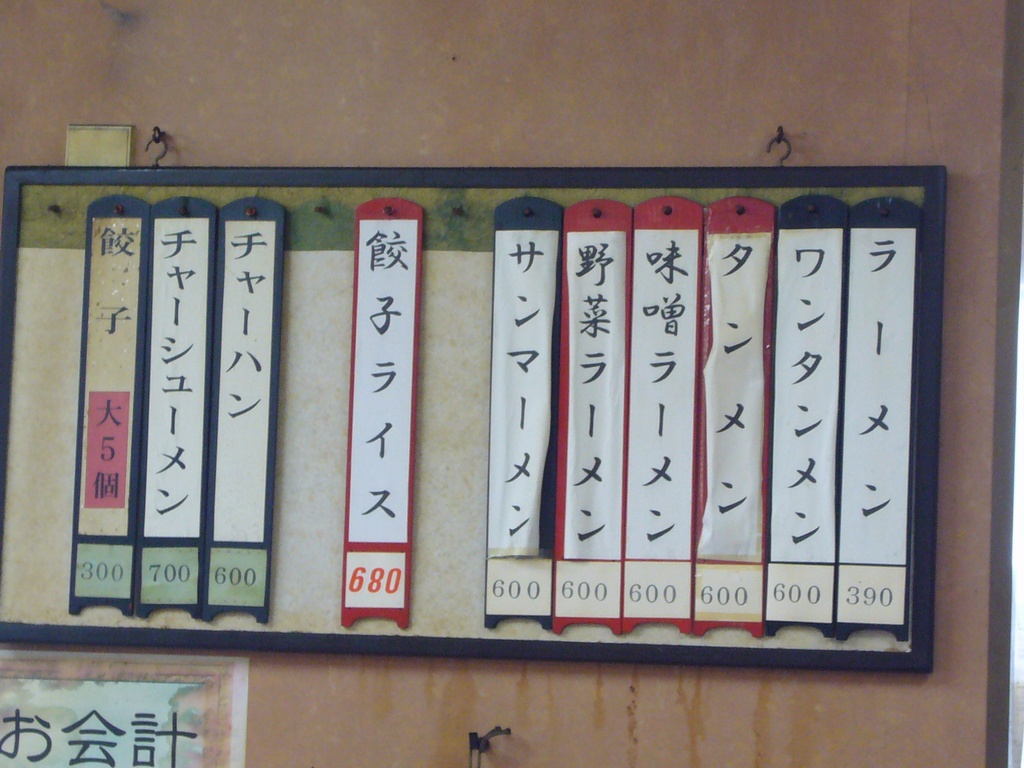 ラーメン
390
ワンタンメン
600
タンメン
600
味噌ラーメン
600
野菜ラーメン
600
サンマーメン
600
餃子ライス
680
チャーハン
600
チャーシューメン
700
餃子
大5個
300
お会計